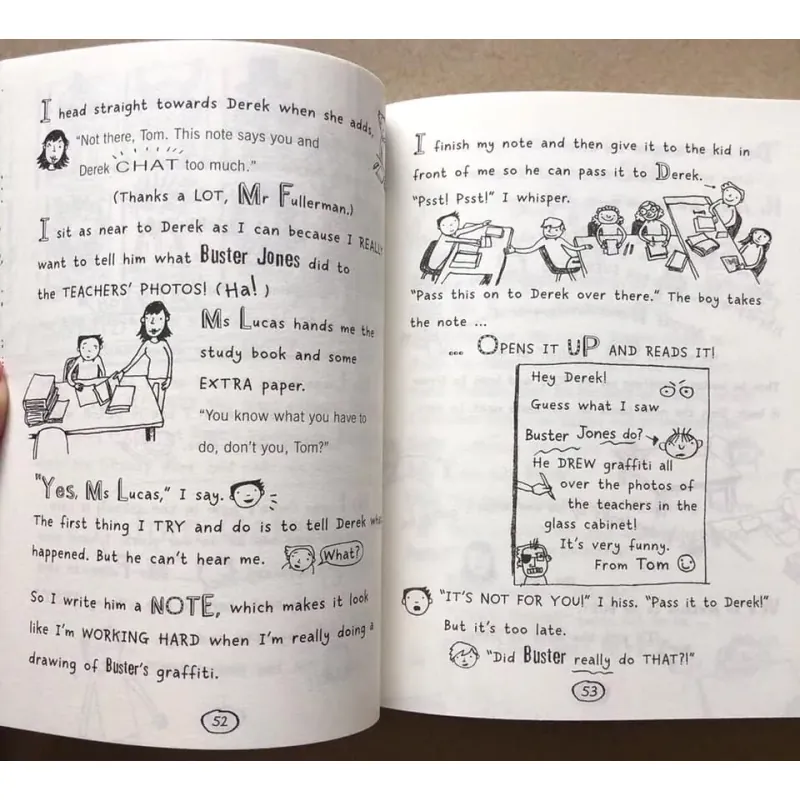 I head straight towards Derek when she adds,
"Not there, Tom. This note says you and
Derek CHAT too much."
(Thanks a LOT, Mr Fullerman.)
I sit as near to Derek as I can because I REALLY
want to tell him what Buster Jones did to
the TEACHERS' PHOTOS! (Ha!)
Ms Lucas hands me the
study book and some
EXTRA paper.
"You know what you have to
do, don't you, Tom?"
"Yes, Ms Lucas," I say.
The first thing I TRY and do is to tell Derek what
happened. But he can't hear me. What?
So I write him a NOTE, which makes it look
like I'm WORKING HARD when I'm really doing a
drawing of Buster's graffiti.
52
I finish my note and then give it to the kid in
front of me so he can pass it to Derek.
"Psst! Psst!" I whisper.
"Pass this on to Derek over there." The boy takes
the note ...
... OPENS IT UP AND READS IT!
Hey Derek!
Guess what I saw
Buster Jones do?
He DREW graffiti all
over the photos of
the teachers in the
glass cabinet!
It's very funny.
From Tom
"IT'S NOT FOR YOU!" I hiss. "Pass it to Derek!"
But it's too late.
"Did Buster really do THAT?!"
53